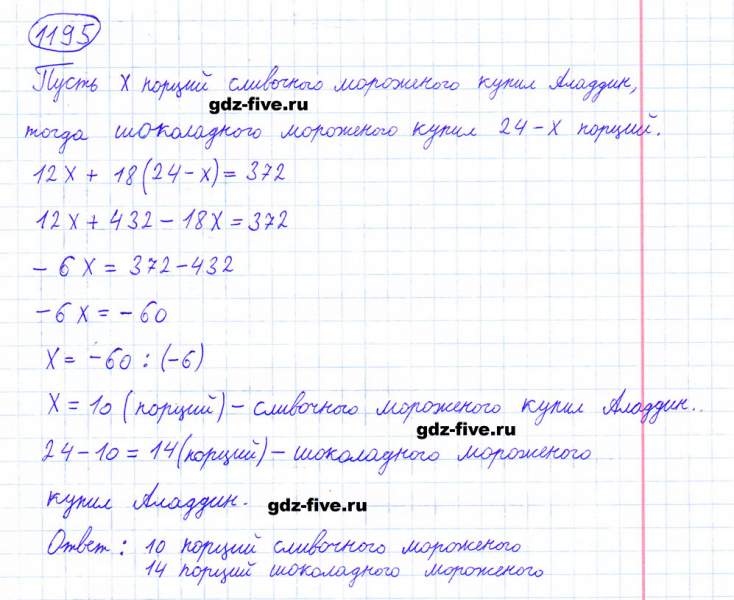 1195
Пусть x порций сливочного мороженого купил Аладдин,
gdz-five.ru
тогда шоколадного мороженого купил 24 - x порций.
12x + 18(24 - x) = 372
12x + 432 - 18x = 372
- 6x = 372 - 432
-6x = -60
x = -60 : (-6)
x = 10 (порций) - сливочного мороженого купил Аладдин..
gdz-five.ru
24 - 10 = 14 (порций) - шоколадного мороженого
купил Аладдин.
gdz-five.ru
Ответ: 10 порций сливочного мороженого
14 порций шоколадного мороженого